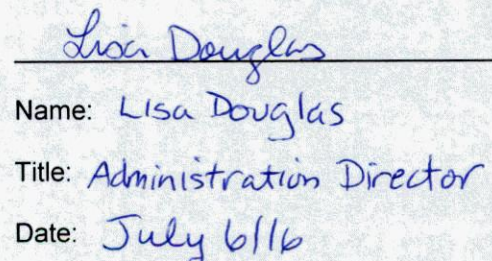 Lisa Douglas
Name: Lisa Douglas
Title: Administration Director
Date: July 6/16